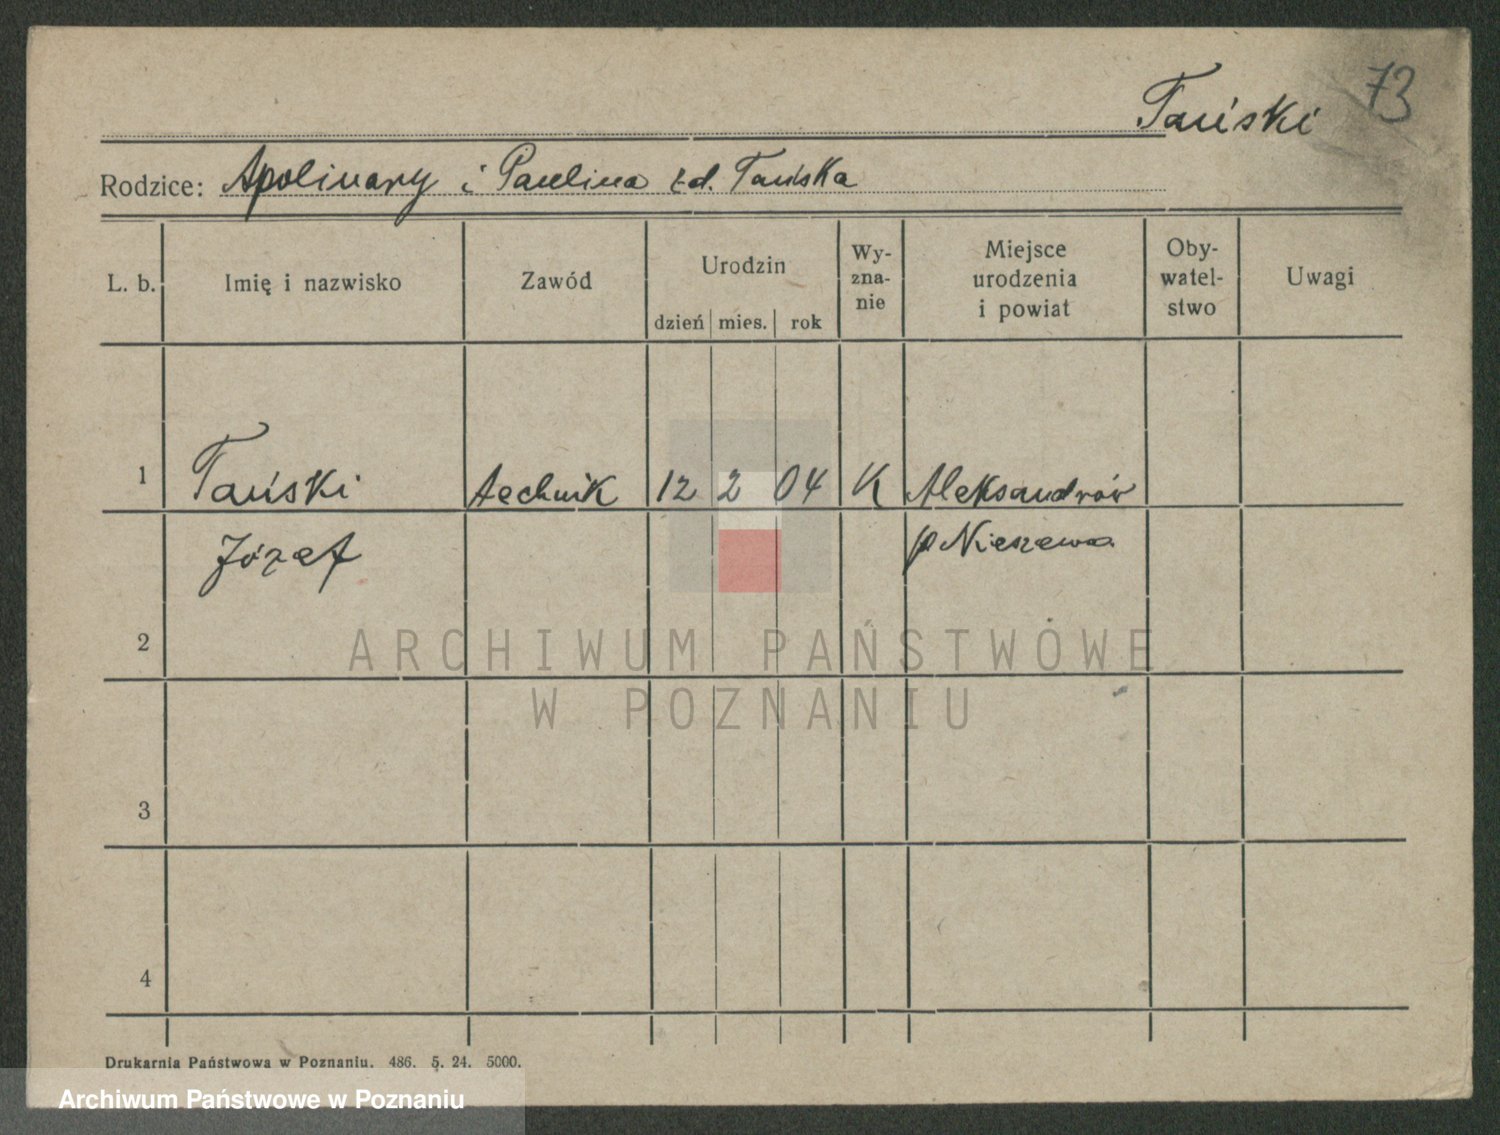 73
Tański
Rodzice: Apolinary i Paulina zd. Tańska
L. b. Imię i nazwisko Zawód Urodzin dzień mies. rok Wy-zna-nie Miejsce urodzenia i powiat Oby-watel-stwo Uwagi
1 Tański technik 12 2 04 K Aleksandrów
Józef p Nieszawa
2
ARCHIWUM PAŃSTWOWE
W POZNANIU
3
4
Drukarnia Państwowa w Poznaniu. 486. 5. 24. 5000.
Archiwum Państwowe w Poznaniu